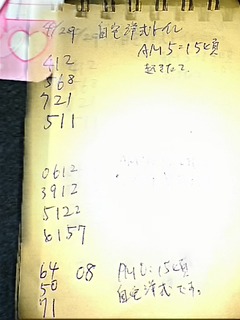 4/29 自宅洋式トイレ
AM5=15頃
起きた。
412
568
721
511
0612
3912
5122
6157
64 08 AM6:15頃
50 自宅洋式です。
71